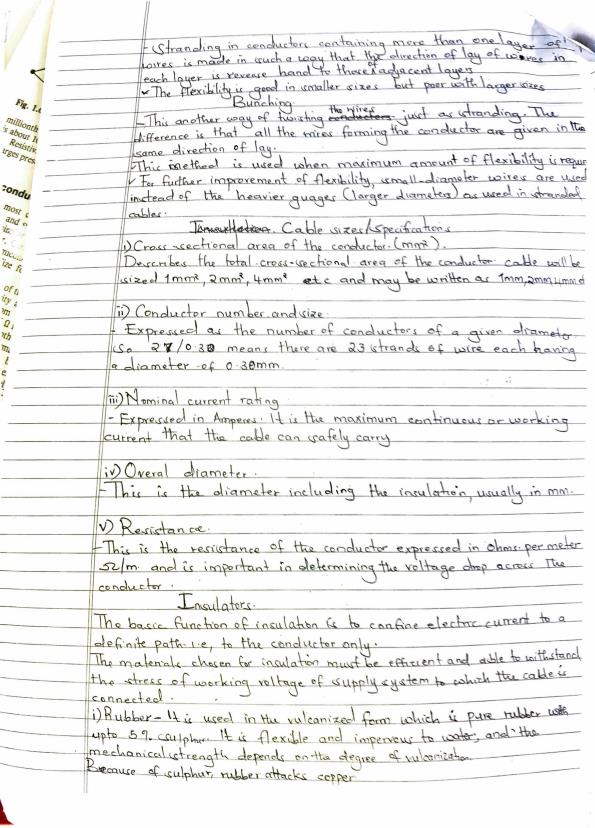 - Stranding in conductors containing more than one layer of
wires is made in such a way that the direction of lay of wires in
each layer is reverse hand to those of adjacent layers
✓ The flexibility is good in smaller sizes but poor with larger sizes
Bunching.
- This another way of twisting conductors the wires just as stranding. The
difference is that all the wires forming the conductor are given in the
same direction of lay.
- This method is used when maximum amount of flexibility is requir
✓ For further improvement of flexibility, small-diameter wires are used
instead of the heavier guages (larger diameters) as used in stranded
cables.
Cable sizes/specifications
i) Cross-sectional area of the conductor. (mm²).
Describes the total cross-sectional area of the conductor cable will be
sized 1mm², 2mm², 4mm² etc and may be written as 1mm, 2mm, 4mm
ii) Conductor number and size.
- Expressed as the number of conductors of a given diameter
/0.30 means there are 23 strands of wire each having
a diameter of 0.30mm.
iii) Nominal current rating
- Expressed in Amperes. It is the maximum continuous or working
current that the cable can safely carry
iv) Overal diameter.
- This is the diameter including the insulation, usually in mm.
v) Resistance.
- This is the resistance of the conductor expressed in Ohms per meter
Ω/m and is important in determining the voltage drop across The
conductor.
Insulators.
The basic function of insulation is to confine electric current to a
definite path i.e, to the conductor only.
The materials chosen for insulation must be efficient and able to withstand
the stress of working voltage of supply system to which the cable is
connected.
i) Rubber - It is used in the vulcanized form which is pure rubber with
upto 5% sulphur. It is flexible and impervous to water, and the
mechanical strength depends on the degree of vulcanization.
Because of sulphur, rubber attacks copper
Fig. 1.
millionth
s about
Resistiv
rges pres
condu
most
and